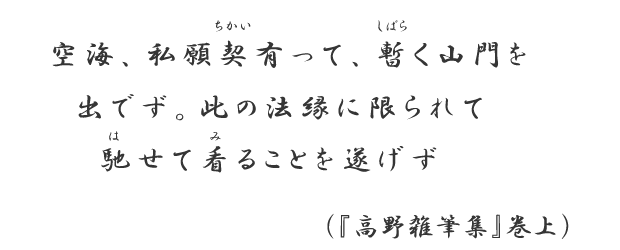 ちかい しばら
空海、私願契有って、暫く山門を
出でず。此の法縁に限られて
は み
馳せて看ることを遂げず
(『高野雑筆集』巻上)